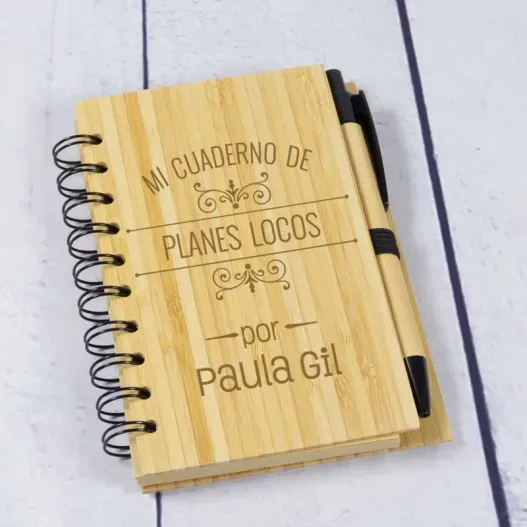 MI CUADERNO DE
PLANES LOCOS
por
Paula Gil